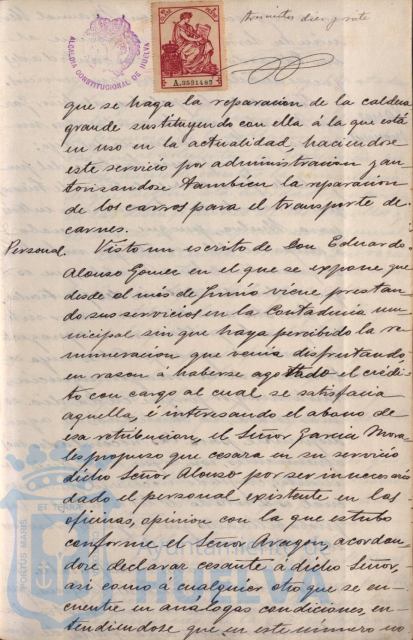 ALCALDIA CONSTITUCIONAL DE HUELVA
A.3551482
que se haga la reparacion de la caldera
grande sustituyendo con ella á la que está
en uso en la actualidad, haciendose
este servicio por administracion y au-
torisandose tambien la reparacion
de los carros para el transporte de
carnes.
Personal. Visto un escrito de Don Eduardo
Alonso Gomez en el que se expone que
desde el mes de Junio viene prestan-
do sus servicios en la Contaduria mu-
nicipal sin que haya percibido la re-
muneracion que venia disfrutando,
en rason á haberse agotado el crédi-
to con cargo al cual se satisfacia
aquella, é interesando el abono de
esa retribucion, el Señor Garcia Mora-
les propuso que cesara en su servicio
dicho Señor Alonso por ser innecesario
dado el personal existente en las
oficinas, opinion con la que estubo
conforme el Señor Aragon, acordan-
dose declarar cesante á dicho Señor,
asi como á cualquier otro que se en-
cuentre en analogas condiciones, en-
tendiendose que en este número no
PORTUS MARIS ET TERRAE
Ayuntamiento de
HUELVA